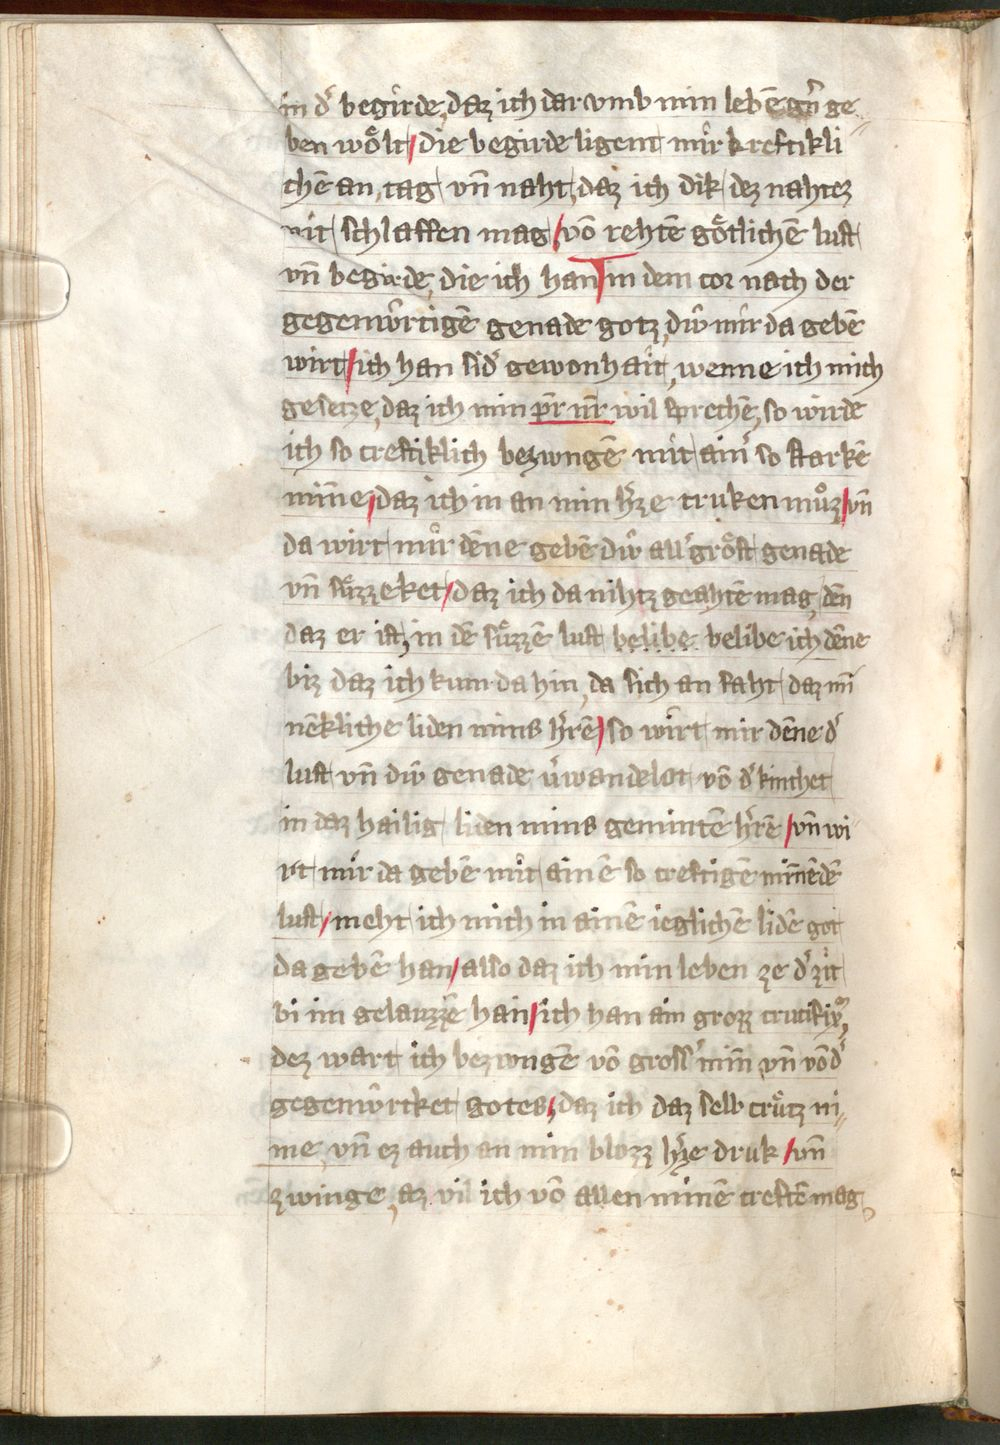 in d' begirde, daz ich dar vmb min lebē gn̄ ge
ben woͤlt / die begirde ligent mir kreftikli
chē an, tag vn̄ naht, daz ich dik dez nahtez
nit schlaffen mag / vō rehtē goͤtlichē lust
vn̄ begirde, die ich han / in dem cor nach der
gegenẘrtigē genade gotz, diẘ mir da gebē
wirt / ich han sid' gewonhait, wenne ich mich
gesetze, daz ich min pr̄ nr̄ wil sprechē, so wirde
ich so creftiklich bezwngē mit ain' so starkē
min̄e / daz ich in an min h'ze truken muͦz / vn̄
da wirt mir dēne gebē diẘ all' groͤst genade
vn̄ suͤzzeket / daz ich da nihtz geahtē mag, dēn
daz er ist, in dē suͤzzē lust belibe belibe ich dēne
biz daz ich kum da hin, da sich an faht daz mī
nēkliche liden mins h'rē / so wirt mir dēne d'
lust vn̄ diẘ genade v'wandelot vō d' kinthet
in daz hailig liden mins gemintē h'rē / vn̄ wi
rt mir da gebē mit ainē so creftigē min̄ēdē
lust / meht ich mich in ainē ieglichē lidē got
da gebē han / also daz ich min leben ze d' zit
bi im gelauzzē han / ich han ain grozz crucifix,
dez wart ich bezwngē vō gross' min̄ vn̄ vō d'
gegenẘrtket gotes / daz ich daz selb cruͤtz ni
me, vn̄ ez auch an min blozz h'ze druk / vn̄
zwinge, az vil ich vō allen minē creftē mag